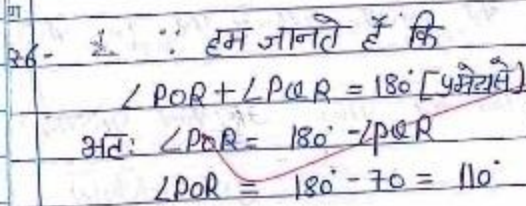 26- ∵ हम जानते हैं कि
∠POR + ∠PQR = 180° [प्रमेय से]
अतः ∠POR = 180° - ∠PQR
∠POR = 180° - 70 = 110°